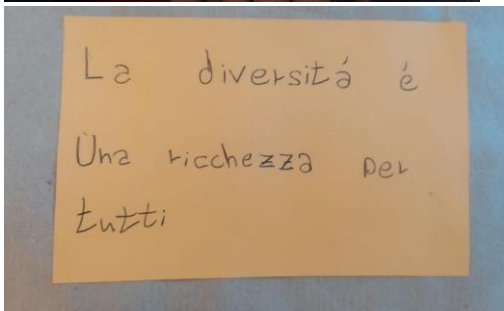 La diversitá é
Una ricchezza per
tutti